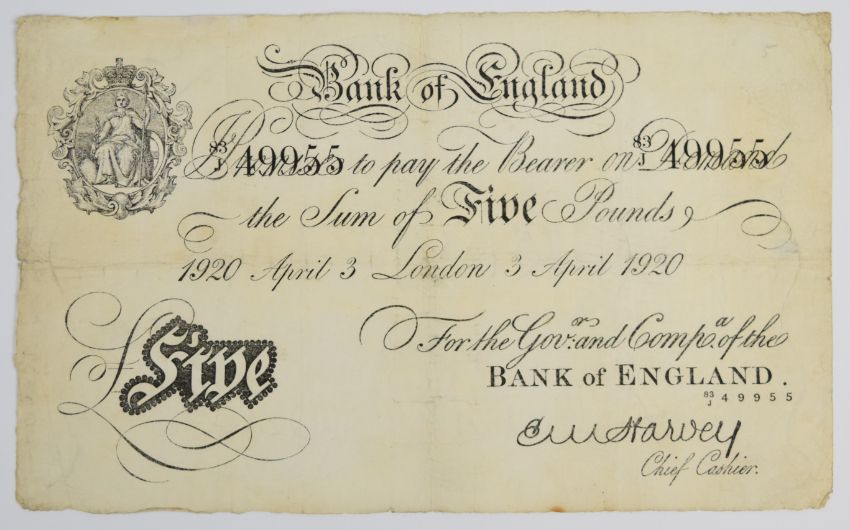 Bank of England
83/J 49955 83/J 49955
I Promise to pay the Bearer on Demand
the Sum of Five Pounds,
1920 April 3 London 3 April 1920
£Five
For the Govr. and Compa. of the
BANK of ENGLAND.
83/J 49955
E M Harvey
Chief Cashier.